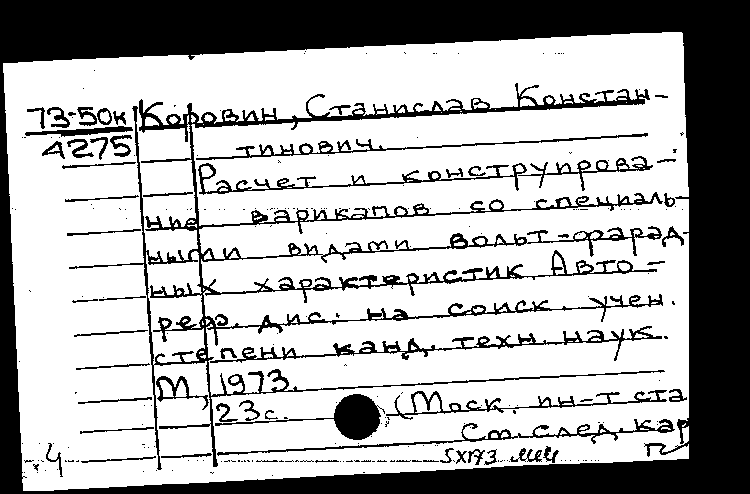 73-50к Коровин, Станислав Констан-
4275 тинович.
Расчет и конструирова-
ние варикапов со специаль-
ными видами вольт-фарад-
ных характеристик. Авто-
реф. дис. на соиск. учен.
степени канд. техн. наук.
М., 1973.
23с. (Моск. ин-т ста
См. след. кар
4